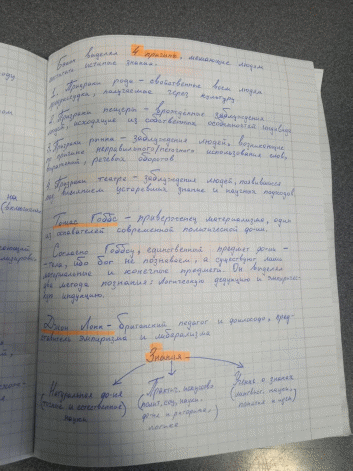 Бэкон выделял 4 призрака, мешающие людям
истинные знания.
1. Призраки рода – свойственные всем людям
предрассудки, полученные через культуру
2. Призраки пещеры – врождённые заблуждения
людей, исходящие из собственных особенностей индивида
3. Призраки рынка – заблуждения людей, возникающие
по причине неправильного использования слов,
выражений, речевых оборотов
4. Призраки театра – заблуждение людей, появившееся
под влиянием устаревших знаний и научных подходов.
Томас Гоббс – приверженец материализма, один
из основателей современной политической фило-фии.
Согласно Гоббсу, единственный предмет ф-фии
– тела, ибо бог не познаваем, а существуют лишь
материальные и конечные предметы. Он выделял
два метода познания: логическую дедукцию и эмпирическую
индукцию.
Джон Локк – британский педагог и философ, пред-
ставитель эмпиризма и либерализма
Знания
Натуральная ф-фия
(точные и естественные
науки)
Практич. искусство
(полит., соц. науки,
ф-фия и риторика,
логика
Учение о знаках
(лингвист. науки,
понятия и идеи)